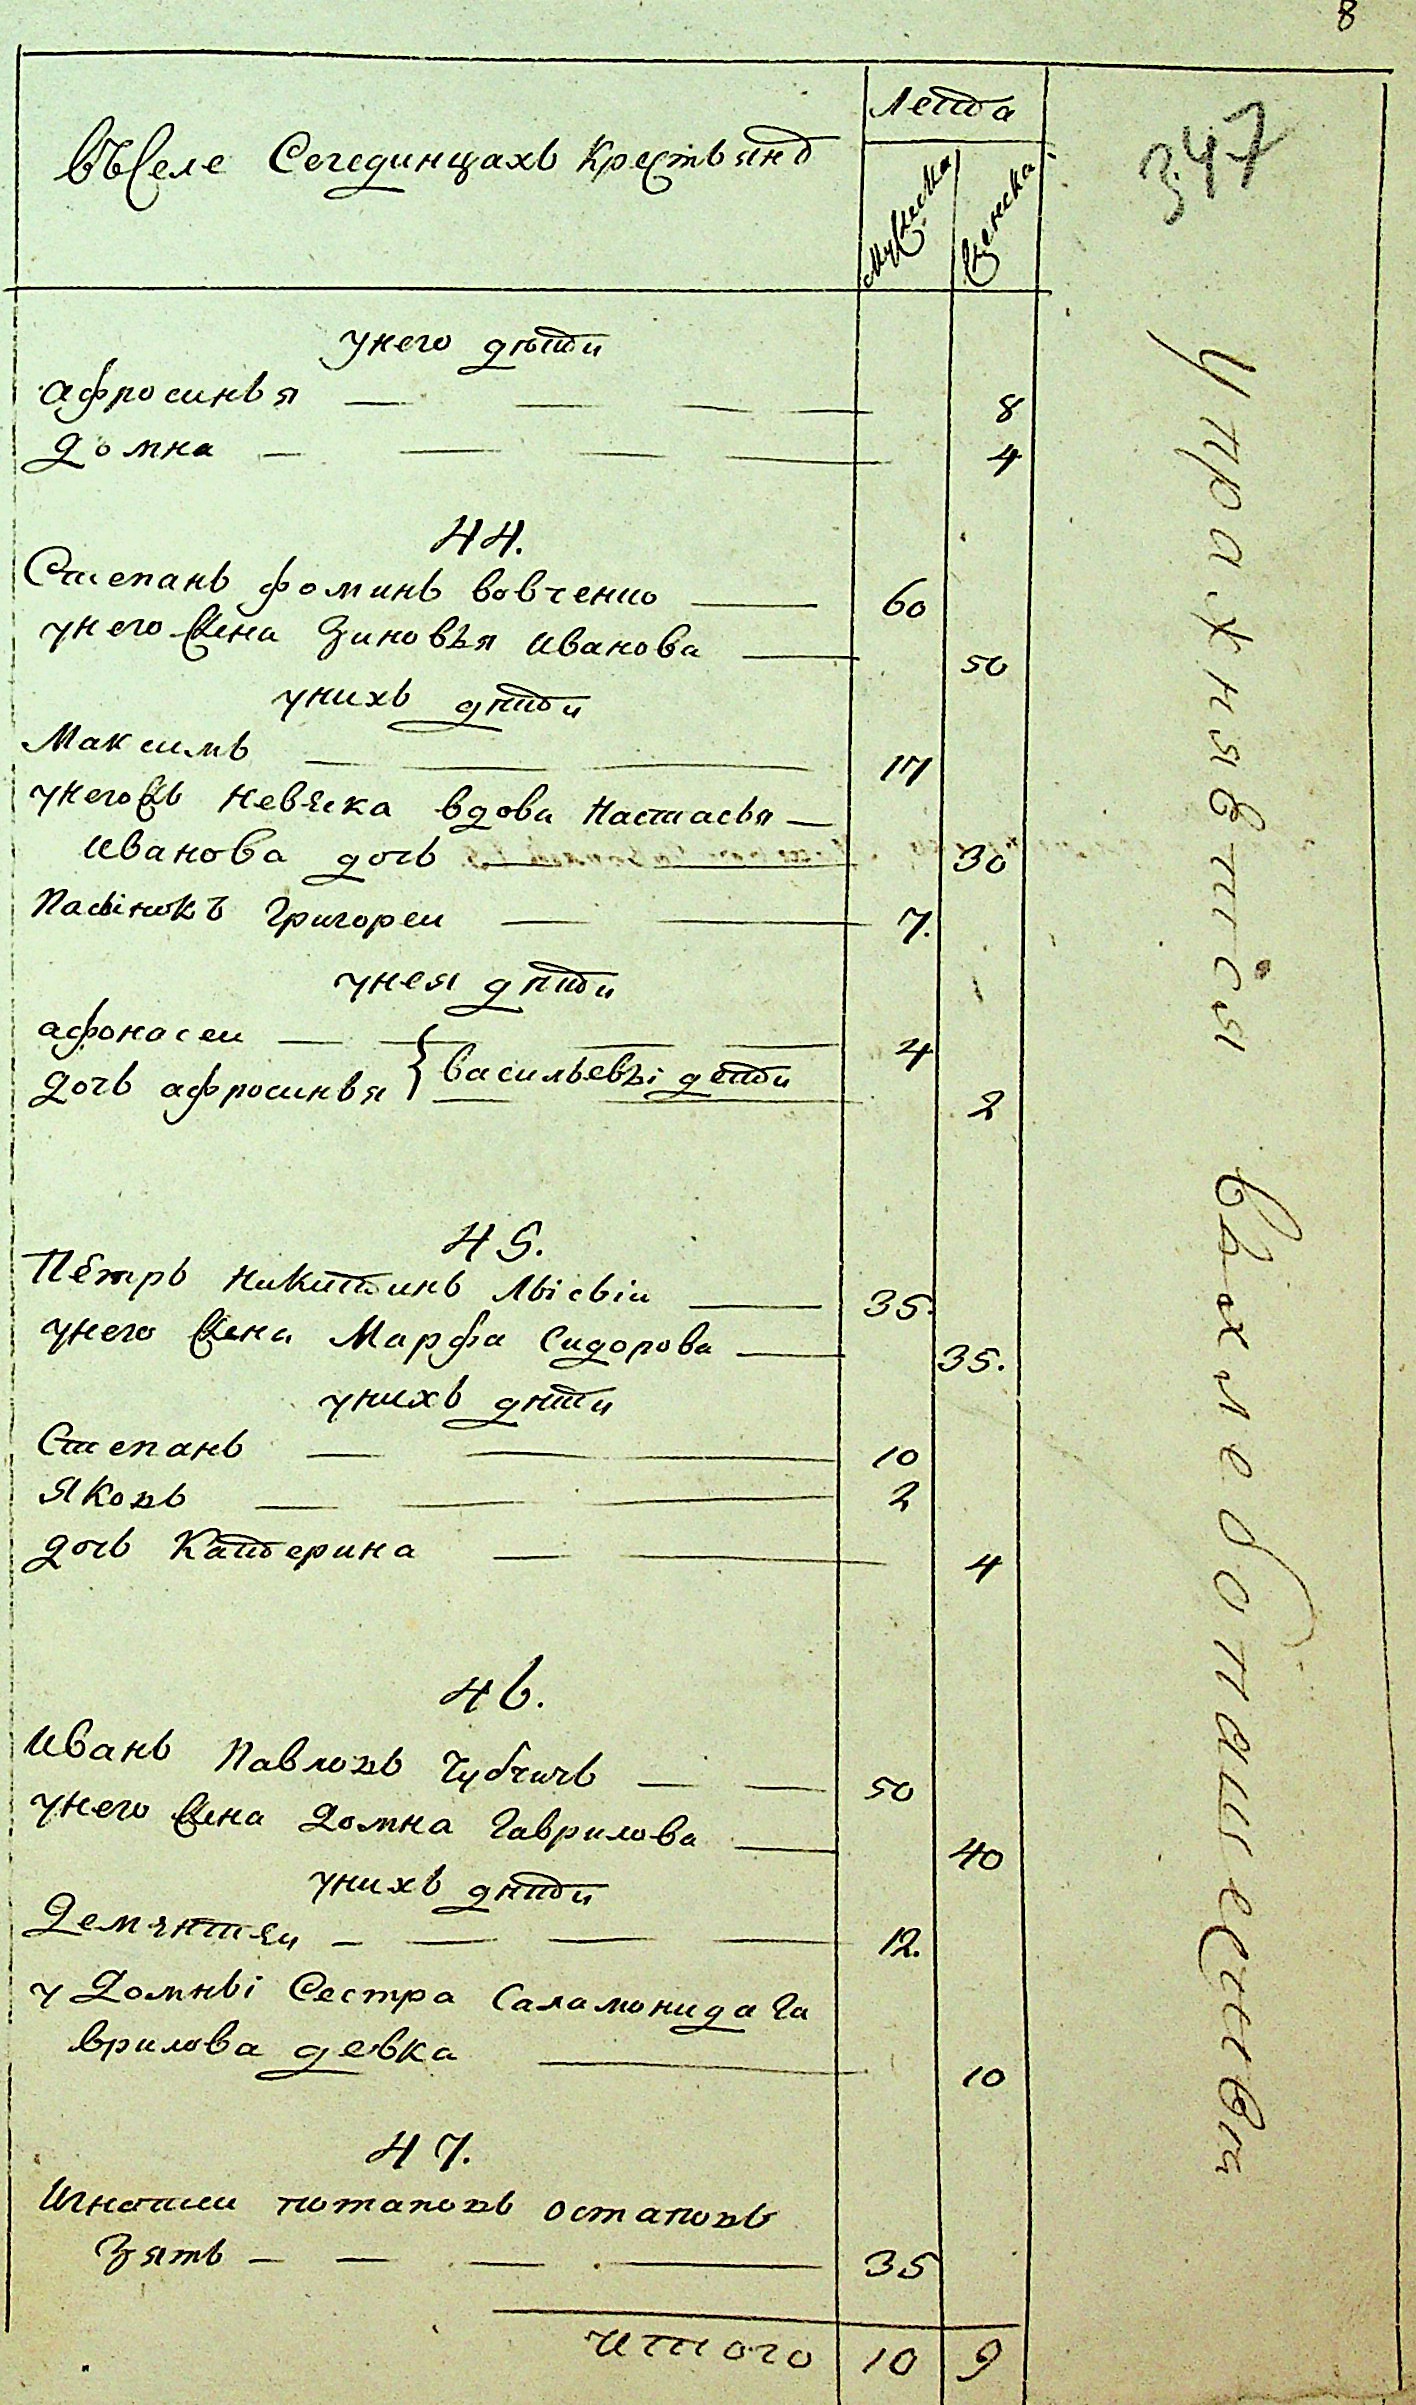 8
въ селе Сегединцахъ крестьянъ
Лета
Мужеска
Женска
347
у него дѣти
Афросинья 8
Домна 4
44.
Степанъ Фоминъ Вовченко 60
у него жена Зиновья Иванова 50
у нихъ дѣти
Максимъ 17
у него жъ невѣска вдова Настасья
Иванова дочь 30
Григореи 7.
у нея дѣти
Афонасеи 4
дочь Афросинья } Васильевы дети 2
45.
Пётръ Никитинъ Лысыи 35.
у него жена Марфа Сидорова 35.
у нихъ дѣти
Степанъ 10
Яковъ 2
дочь Катерина 4
46.
Иванъ Павловъ Чубчичъ 50
у него жена Домна Гаврилова 40
у нихъ дѣти
Демянтеи 12.
у Домны сестра Саламонида Га
врилова девка 10
47.
Игнатеи Потаповъ Остаповъ
зять 35
итого 10 9
упражнявтся в хлебопашестви